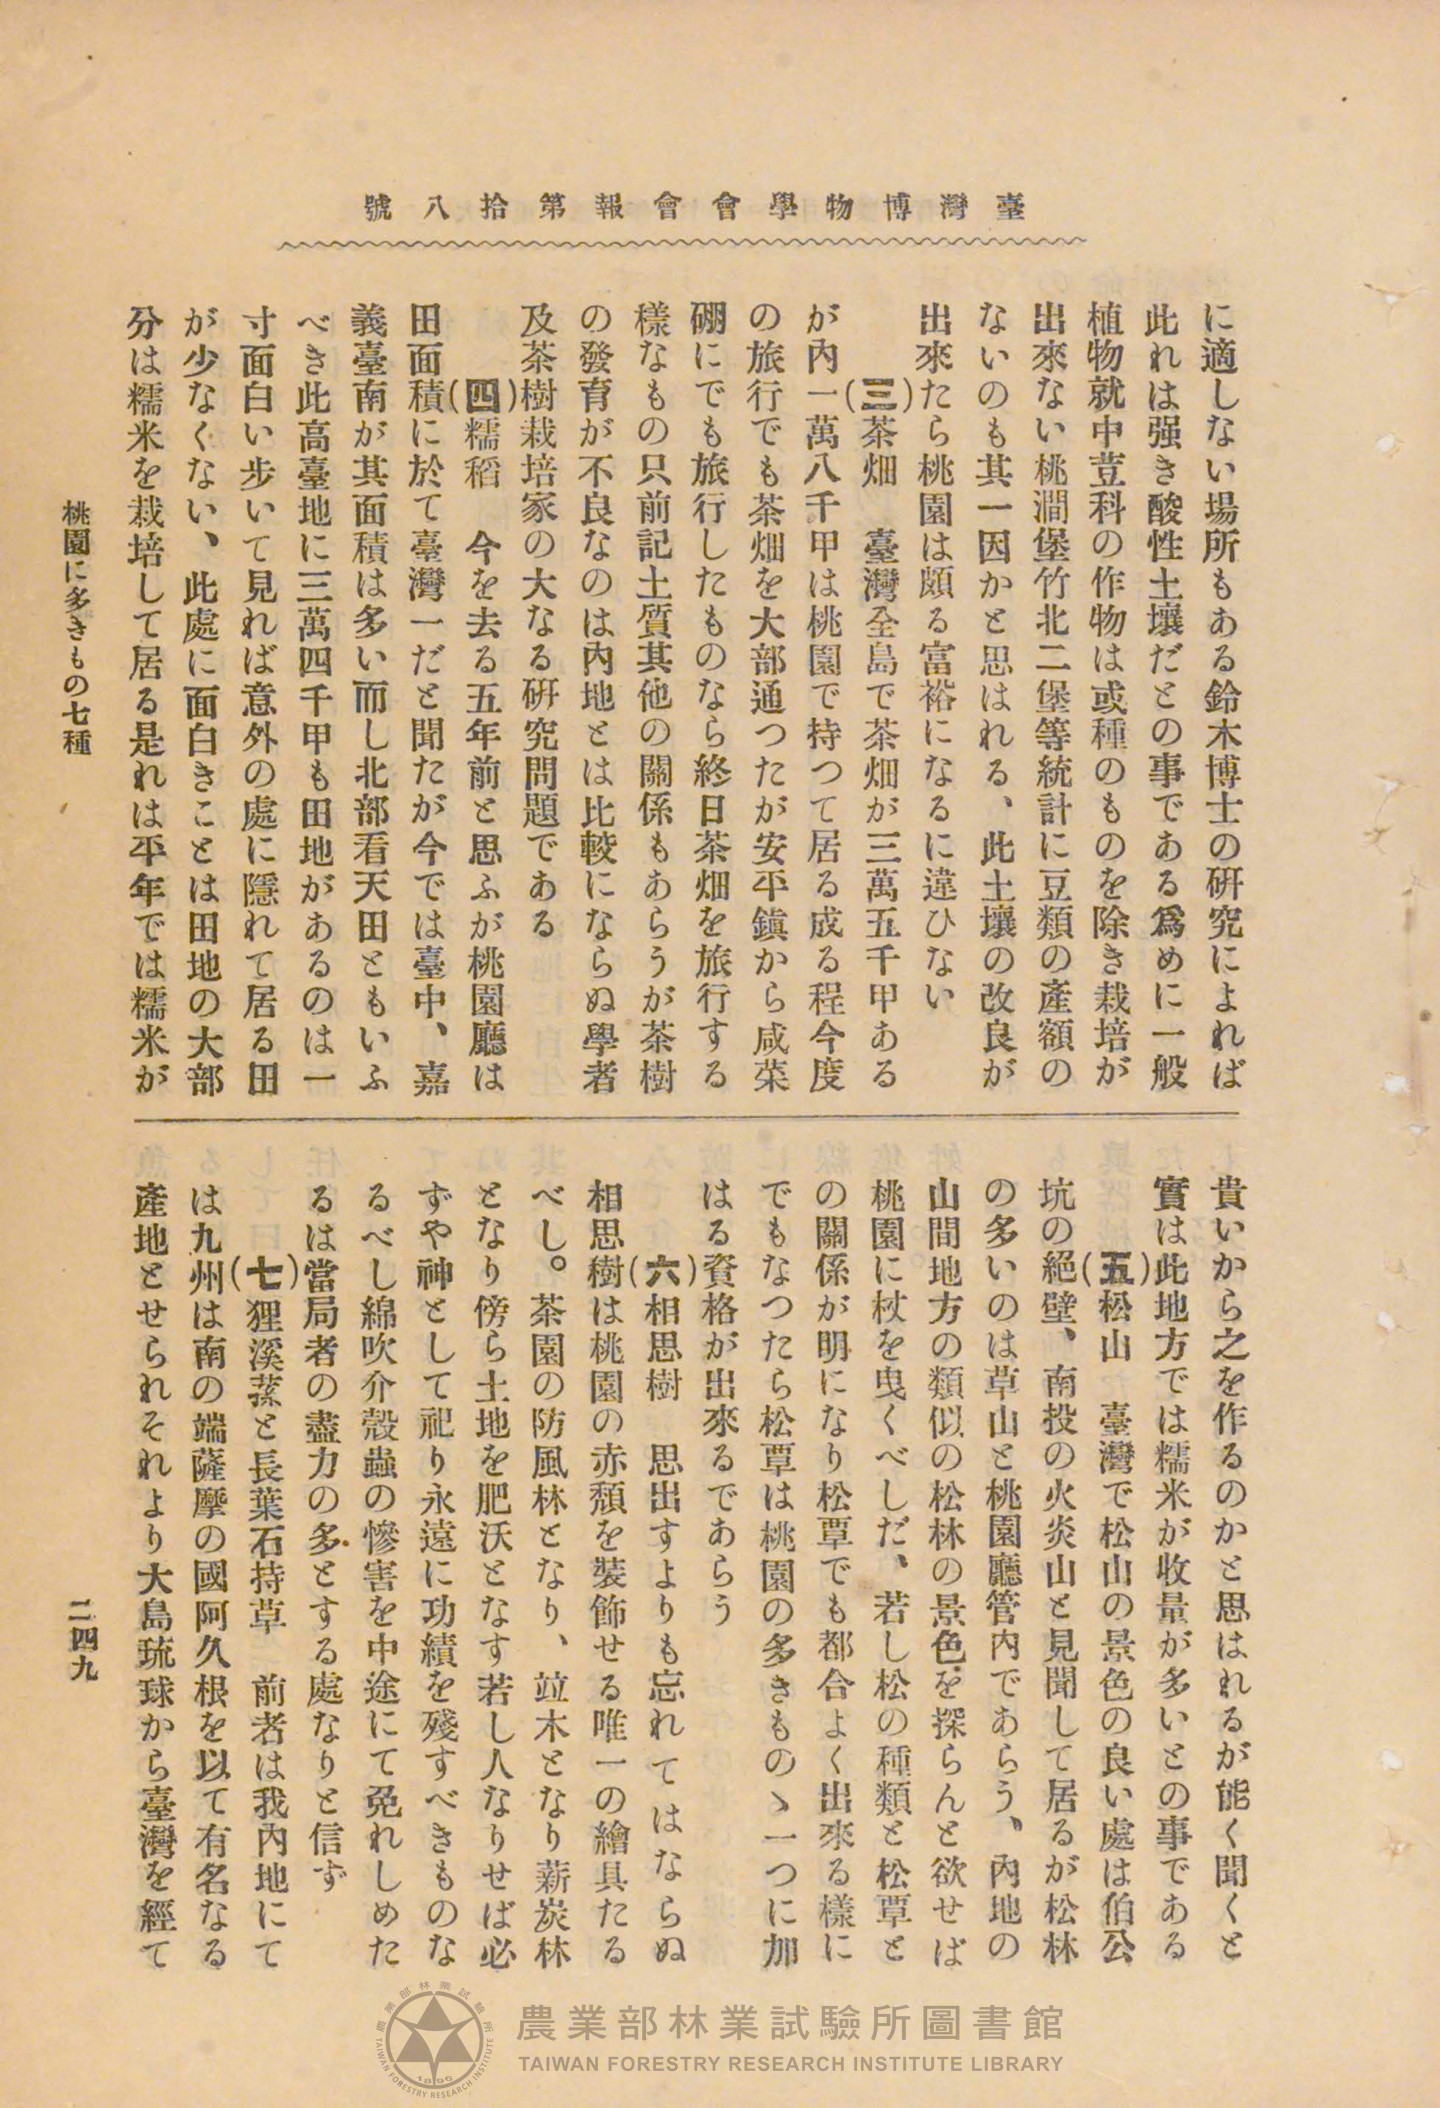 臺灣博物學會會報第拾八號
に適しない場所もある鈴木博士の硏究によれば
此れは强き酸性土壤だとの事である爲めに一般
植物就中荳科の作物は或種のものを除き栽培が
出來ない桃澗堡竹北二堡等統計に豆類の產額の
ないのも其一因かと思はれる、此土壤の改良が
出來たら桃園は頗る富裕になるに違ひない
(三)茶畑　臺灣全島で茶畑が三萬五千甲ある
が內一萬八千甲は桃園で持つて居る成る程今度
の旅行でも茶畑を大部通つたが安平鎭から咸菜
硼にでも旅行したものなら終日茶畑を旅行する
樣なもの只前記土質其他の關係もあらうが茶樹
の發育が不良なのは內地とは比較にならぬ學者
及茶樹栽培家の大なる硏究問題である
(四)糯稻　今を去る五年前と思ふが桃園廳は
田面積に於て臺灣一だと聞たが今では臺中、嘉
義臺南が其面積は多い而し北部看天田ともいふ
べき此高臺地に三萬四千甲も田地があるのは一
寸面白い步いて見れば意外の處に隱れて居る田
が少なくない、此處に面白きことは田地の大部
分は糯米を栽培して居る是れは平年では糯米が
貴いから之を作るのかと思はれるが能く聞くと
實は此地方では糯米が收量が多いとの事である
(五)松山　臺灣で松山の景色の良い處は伯公
坑の絕壁、南投の火炎山と見聞して居るが松林
の多いのは草山と桃園廳管內であらう、內地の
山間地方の類似の松林の景色を探らんと欲せば
桃園に杖を曳くべしだ、若し松の種類と松蕈と
の關係が明になり松蕈でも都合よく出來る樣に
でもなつたら松蕈は桃園の多きものゝ一つに加
はる資格が出來るであらう
(六)相思樹　思出すよりも忘れてはならぬ
相思樹は桃園の赤頽を裝飾せる唯一の繪具たる
べし。茶園の防風林となり、竝木となり薪炭林
となり傍ら土地を肥沃となす若し人なりせば必
ずや神として祀り永遠に功績を殘すべきものな
るべし綿吹介殼蟲の慘害を中途にて免れしめた
るは當局者の盡力の多とする處なりと信ず
(七)狸溪蓀と長葉石持草　前者は我內地にて
は九州は南の端薩摩の國阿久根を以て有名なる
產地とせられそれより大島琉球から臺灣を經て
桃園に多きもの七種
二四九
農業部林業試驗所圖書館
TAIWAN FORESTRY RESEARCH INSTITUTE LIBRARY
農業部林業試驗所
1896
TAIWAN FORESTRY RESEARCH INSTITUTE